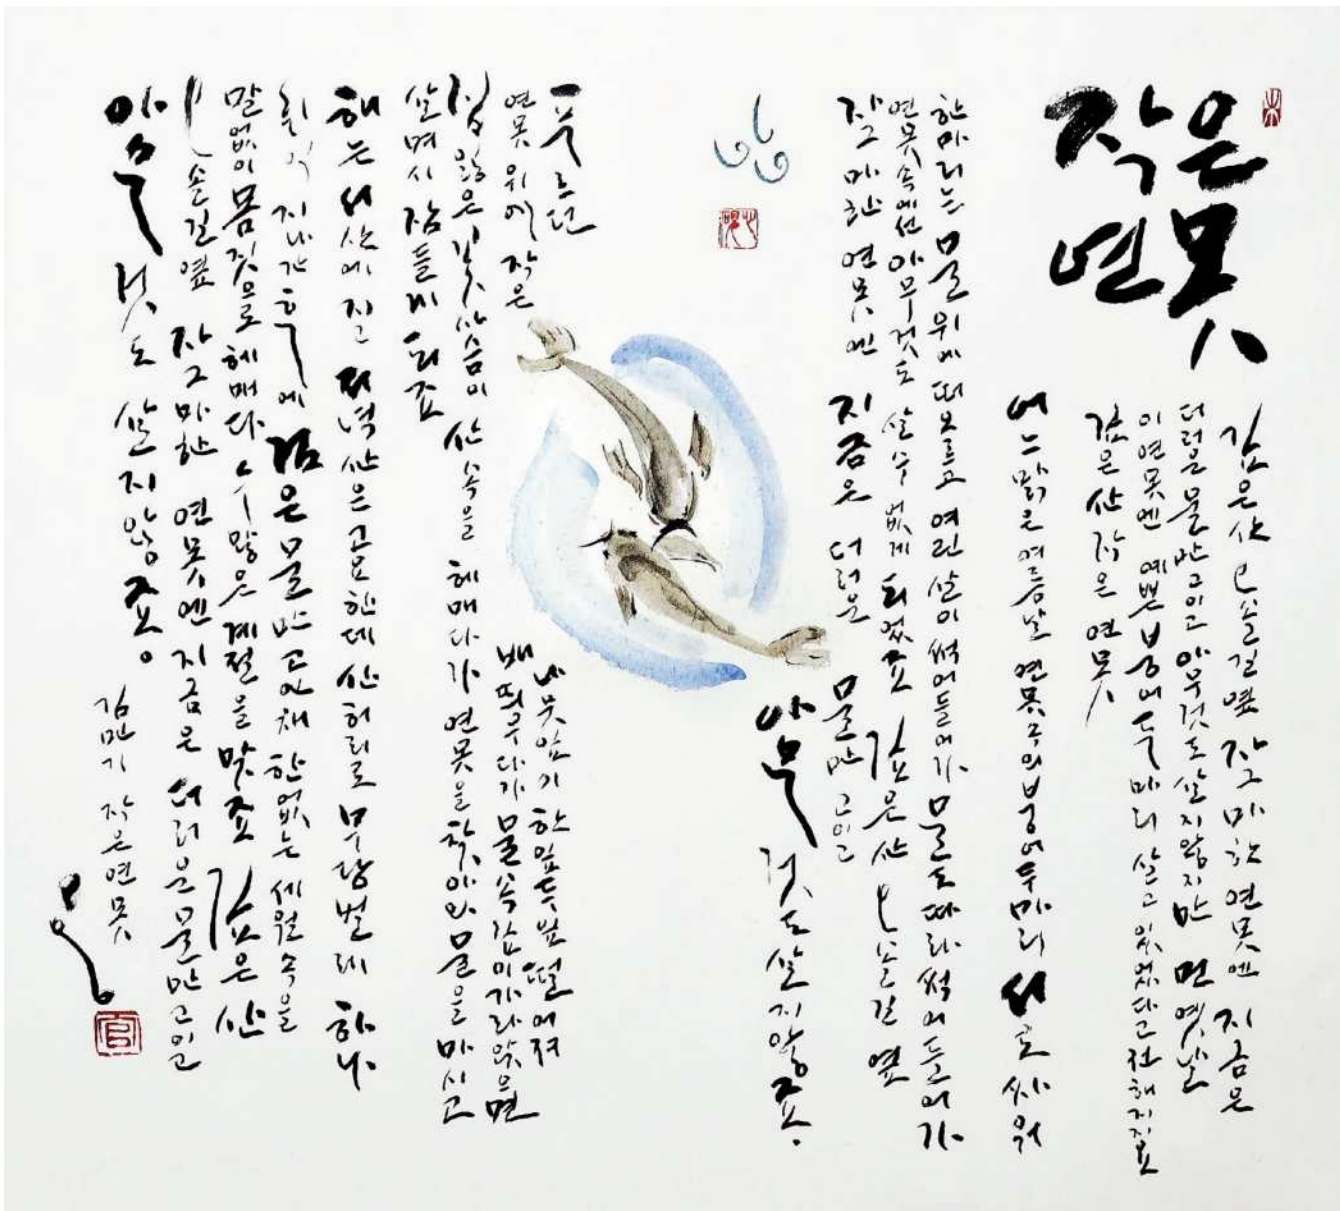 작은
연못
깊은 산 오솔길 옆 자그마한 연못엔 지금은
더러운 물만 고이고 아무것도 살지 않지만 먼 옛날
이 연못엔 예쁜 붕어 두 마리 살고 있었다고 전해지지요
깊은 산 작은 연못
어느 맑은 여름날 연못 속의 붕어 두 마리 서로 싸워
한 마리는 물 위에 떠오르고 여린 살이 썩어 들어가 물도 따라 썩어 들어가
연못 속에선 아무것도 살 수 없게 되었죠 깊은 산 오솔길 옆
자그마한 연못엔 지금은 더러운 물만 고이고
아무것도 살지 않죠.
푸르던 나뭇잎이 한 잎 두 잎 떨어져
연못 위에 작은 배 띄우다가 물속 깊이 가라앉으면
집 잃은 꽃사슴이 산속을 헤매다가 연못을 찾아와 물을 마시고
살며시 잠들게 되죠
해는 서산에 지고 저녁 산은 고요한데 산허리로 무당벌레 하나
휘익 지나간 후에 검은 물만 고인 채 한없는 세월 속을
말없이 몸짓으로 헤매다 수많은 계절을 맞죠 깊은 산
오솔길 옆 자그마한 연못엔 지금은 더러운 물만 고이고
아무것도 살지 않죠.
김민기 작은 연못